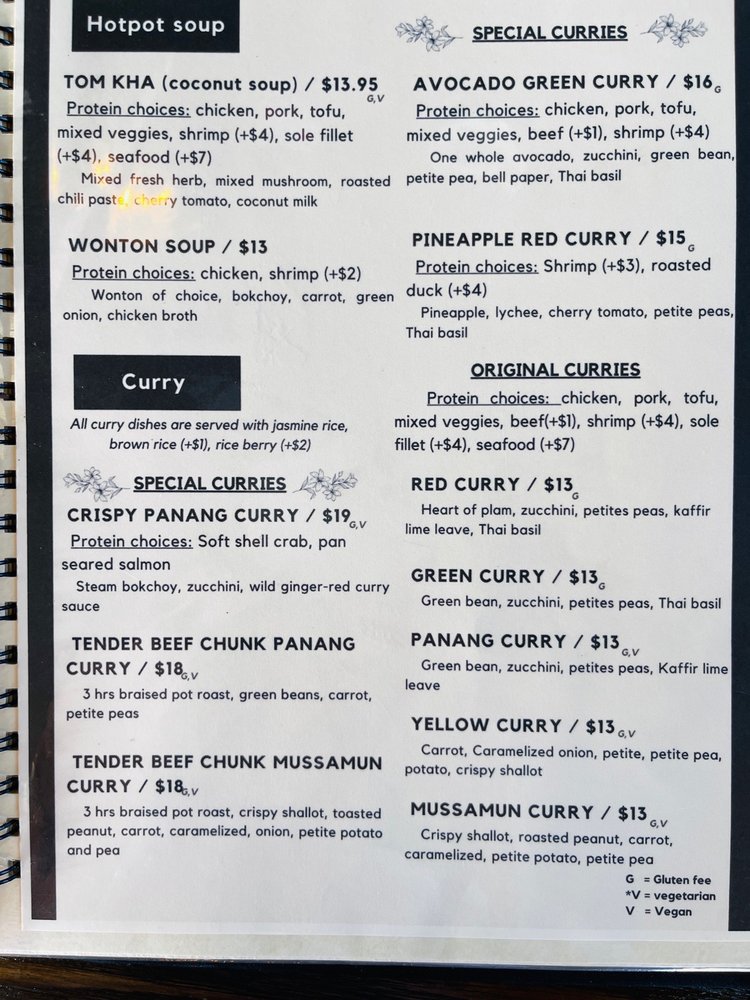 Hotpot soup
TOM KHA (coconut soup) / $13.95 G,V
Protein choices: chicken, pork, tofu,
mixed veggies, shrimp (+$4), sole fillet
(+$4), seafood (+$7)
Mixed fresh herb, mixed mushroom, roasted
chili paste, cherry tomato, coconut milk
WONTON SOUP / $13
Protein choices: chicken, shrimp (+$2)
Wonton of choice, bokchoy, carrot, green
onion, chicken broth
Curry
All curry dishes are served with jasmine rice,
brown rice (+$1), rice berry (+$2)
SPECIAL CURRIES
CRISPY PANANG CURRY / $19 G,V
Protein choices: Soft shell crab, pan
seared salmon
Steam bokchoy, zucchini, wild ginger-red curry
sauce
TENDER BEEF CHUNK PANANG
CURRY / $18 G,V
3 hrs braised pot roast, green beans, carrot,
petite peas
TENDER BEEF CHUNK MUSSAMUN
CURRY / $18 G,V
3 hrs braised pot roast, crispy shallot, toasted
peanut, carrot, caramelized, onion, petite potato
and pea
SPECIAL CURRIES
AVOCADO GREEN CURRY / $16 G
Protein choices: chicken, pork, tofu,
mixed veggies, beef (+$1), shrimp (+$4)
One whole avocado, zucchini, green bean,
petite pea, bell paper, Thai basil
PINEAPPLE RED CURRY / $15 G
Protein choices: Shrimp (+$3), roasted
duck (+$4)
Pineapple, lychee, cherry tomato, petite peas,
Thai basil
ORIGINAL CURRIES
Protein choices: chicken, pork, tofu,
mixed veggies, beef(+$1), shrimp (+$4), sole
fillet (+$4), seafood (+$7)
RED CURRY / $13 G
Heart of plam, zucchini, petites peas, kaffir
lime leave, Thai basil
GREEN CURRY / $13 G
Green bean, zucchini, petites peas, Thai basil
PANANG CURRY / $13 G,V
Green bean, zucchini, petites peas, Kaffir lime
leave
YELLOW CURRY / $13 G,V
Carrot, Caramelized onion, petite, petite pea,
potato, crispy shallot
MUSSAMUN CURRY / $13 G,V
Crispy shallot, roasted peanut, carrot,
caramelized, petite potato, petite pea
G = Gluten fee
*V = vegetarian
V = Vegan